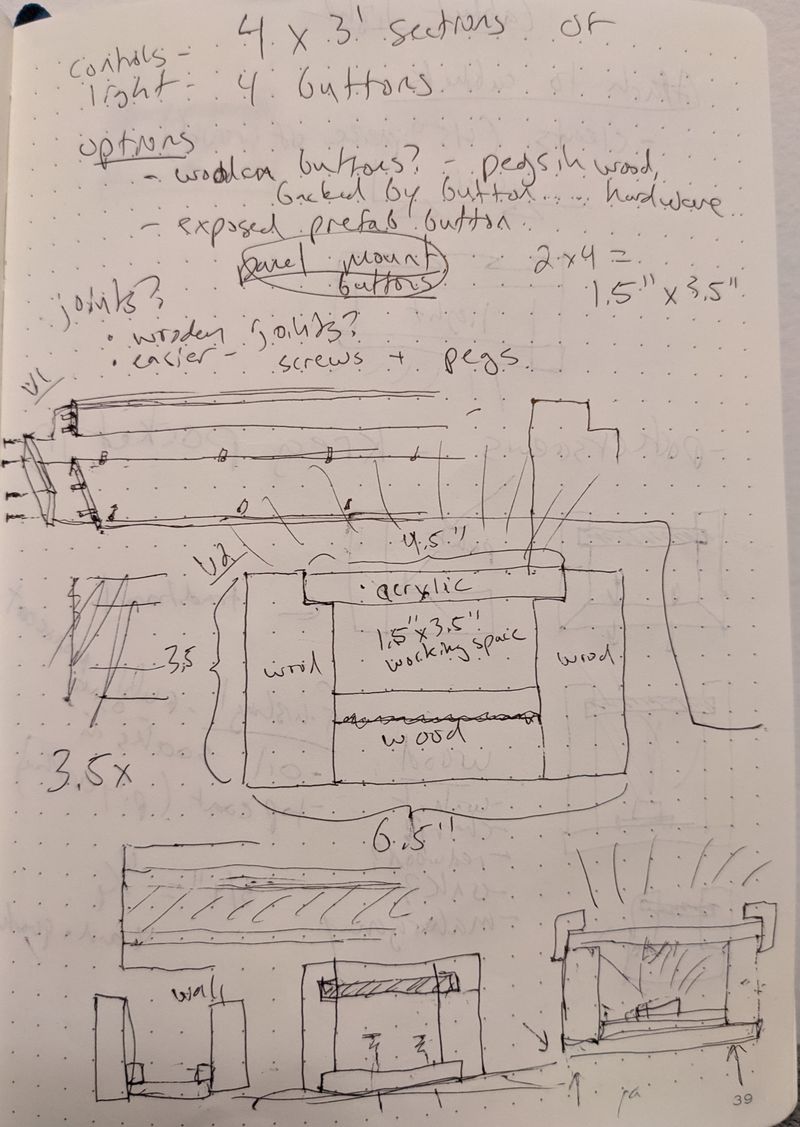 4 x 3' sections of
controls -
light - 4 buttons
options
- wooden buttons? - pegs in wood,
backed by button .... hardware
- exposed prefab button
panel mount
buttons
2 x 4 =
1.5" x 3.5"
joints?
• wooden joints?
• easier - screws + pegs
V1
V2
4.5"
acrylic
1.5" x 3.5"
working space
wood
wood
3.5
wood
3.5 x
6.5"
wall
39